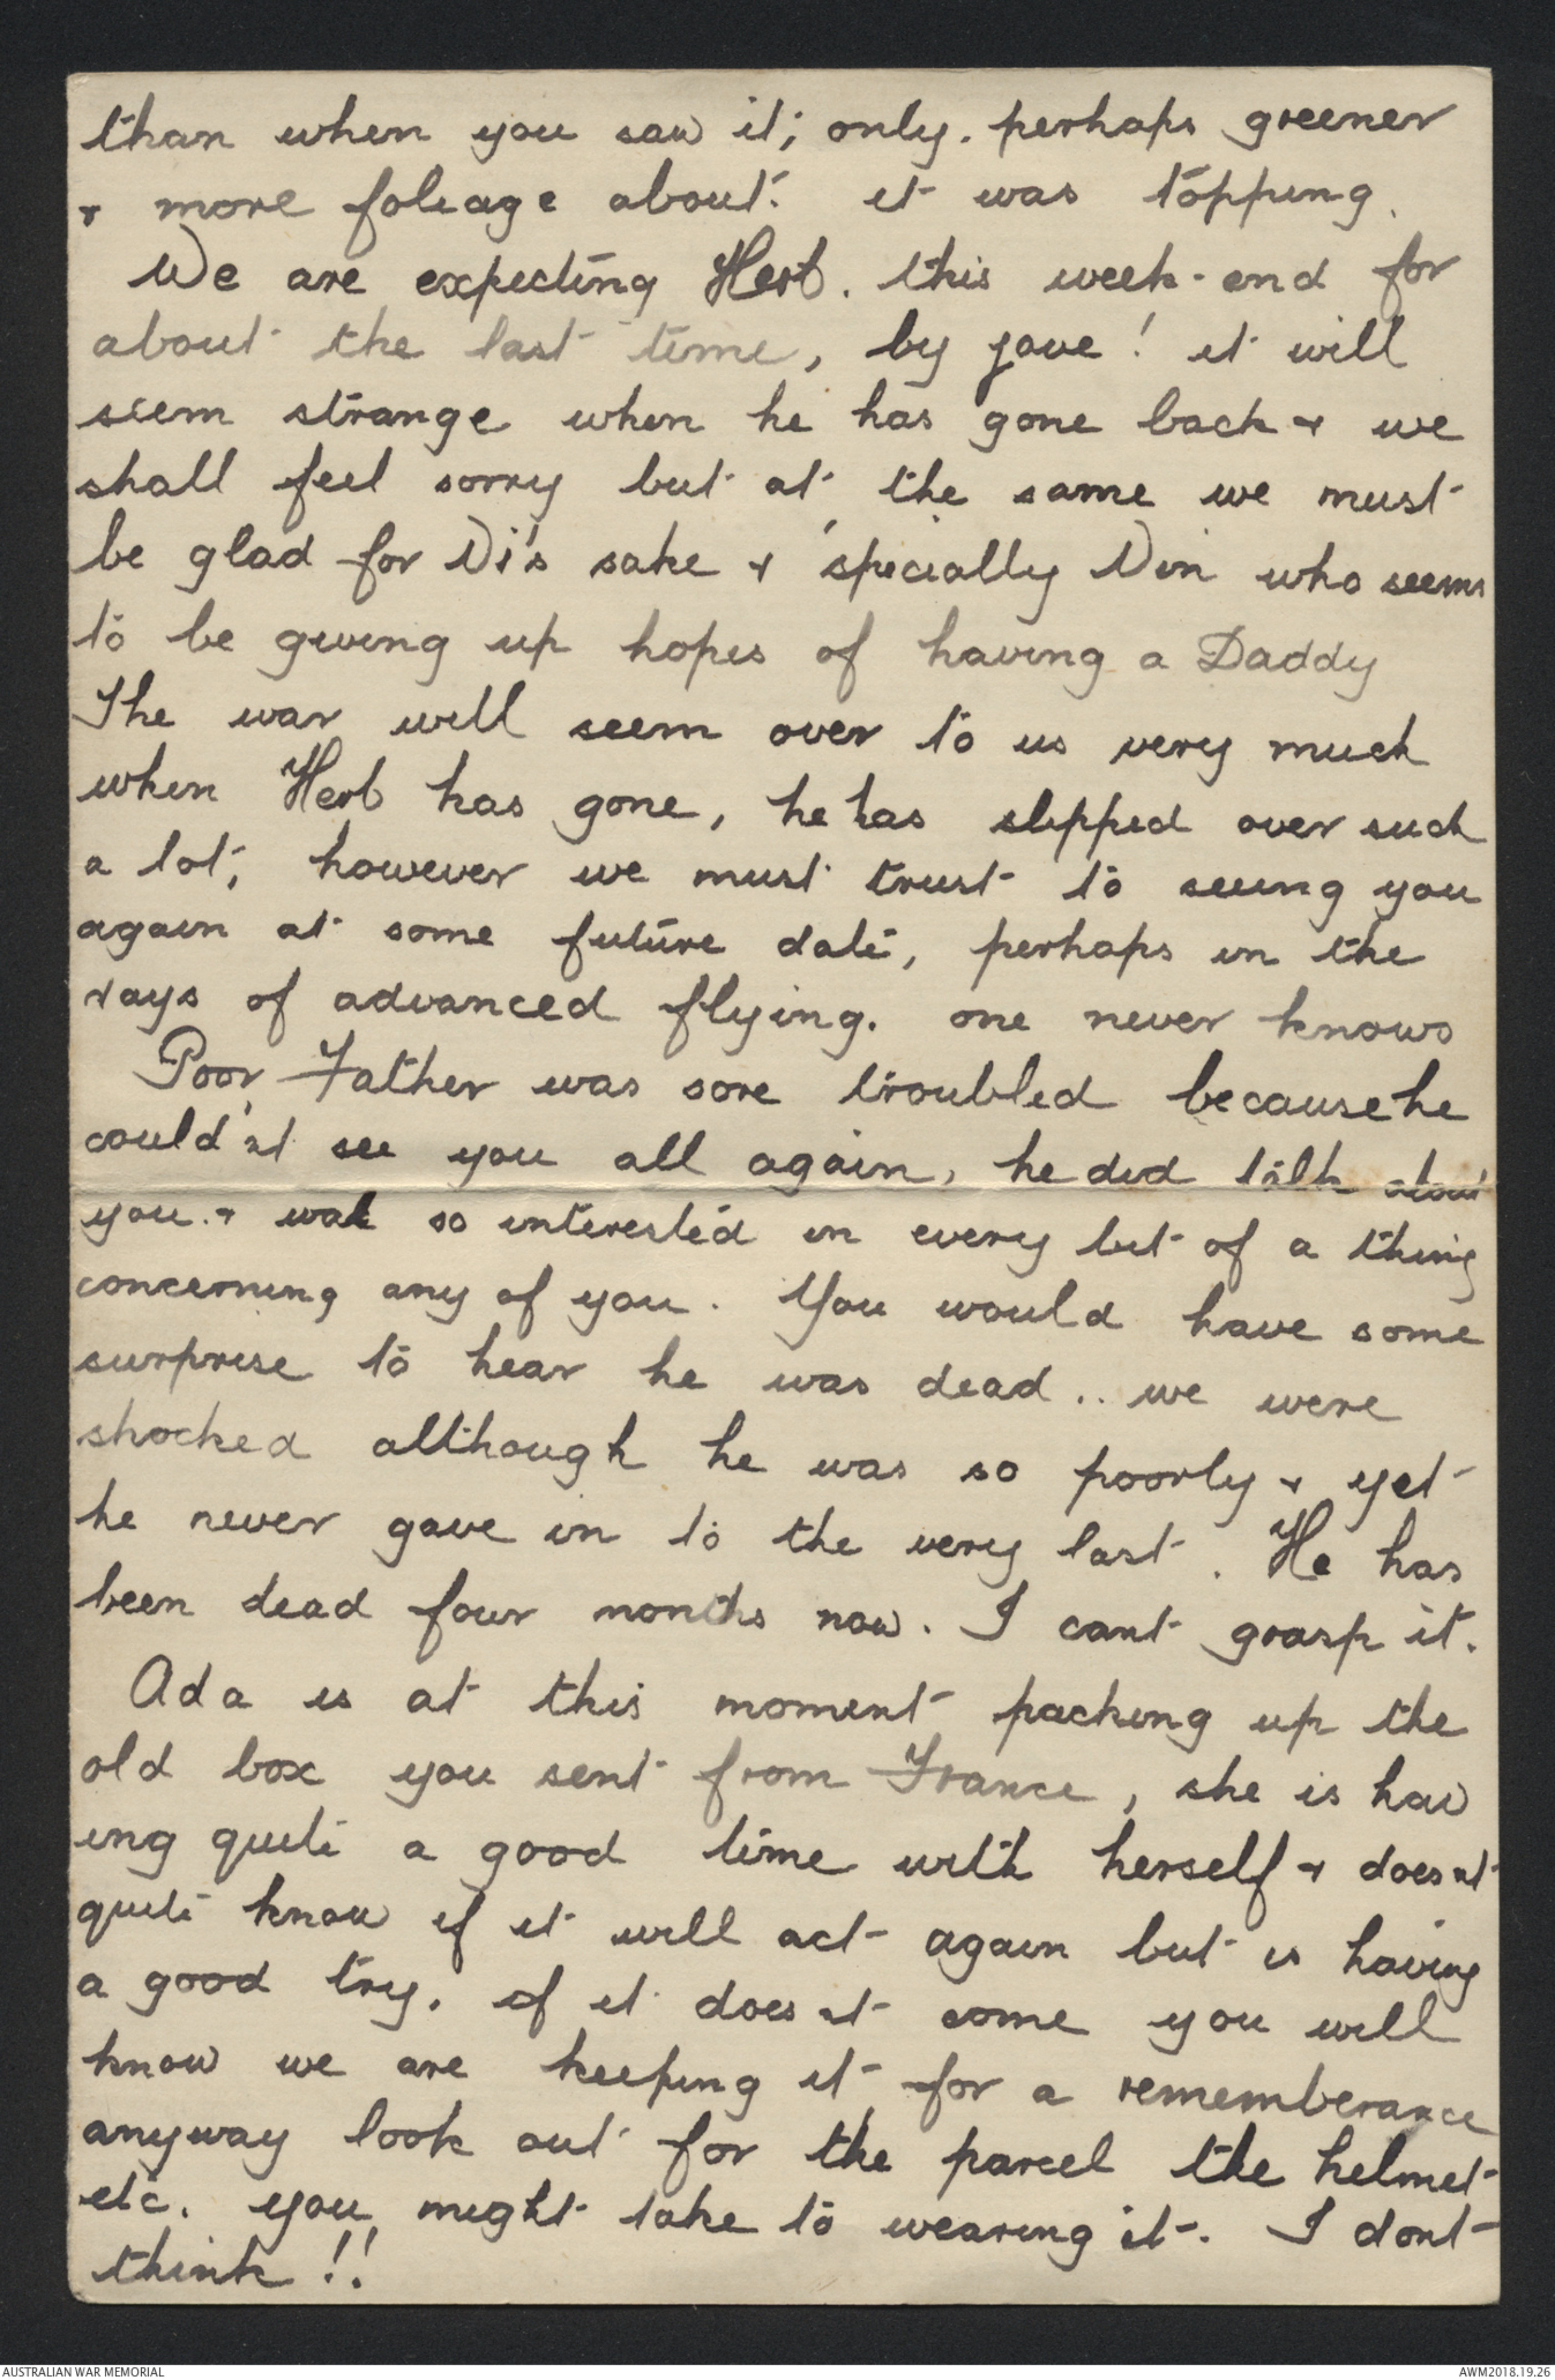 than when you saw it; only. perhaps greener
& more foliage about. it was topping.
We are expecting Herb. this week-end for
about the last time, by jove! it will
seem strange when he has gone back & we
shall feel sorry but at the same we must
be glad for Di's sake & 'specially Din who seems
to be giving up hopes of having a Daddy
The war will seem over to us very much
when Herb has gone, he has slipped over such
a lot; however we must trust to seeing you
again at some future date, perhaps in the
days of advanced flying. one never knows
Poor Father was sore troubled because he
could'nt see you all again, he did talk about
you. & was so interested in every bit of a thing
concerning any of you. You would have some
surprise to hear he was dead.. we were
shocked although he was so poorly & yet
he never gave in to the very last. He has
been dead four months now. I cant grasp it.
Ada is at this moment packing up the
old box you sent from France, she is hav
ing quite a good time with herself & does nt
quite know if it will act again but is having
a good try. if it does nt come you will
know we are keeping it for a rememberance
anyway look out for the parcel the helmet
etc. you might take to wearing it. I dont
think!!
AUSTRALIAN WAR MEMORIAL
AWM2018.19.26